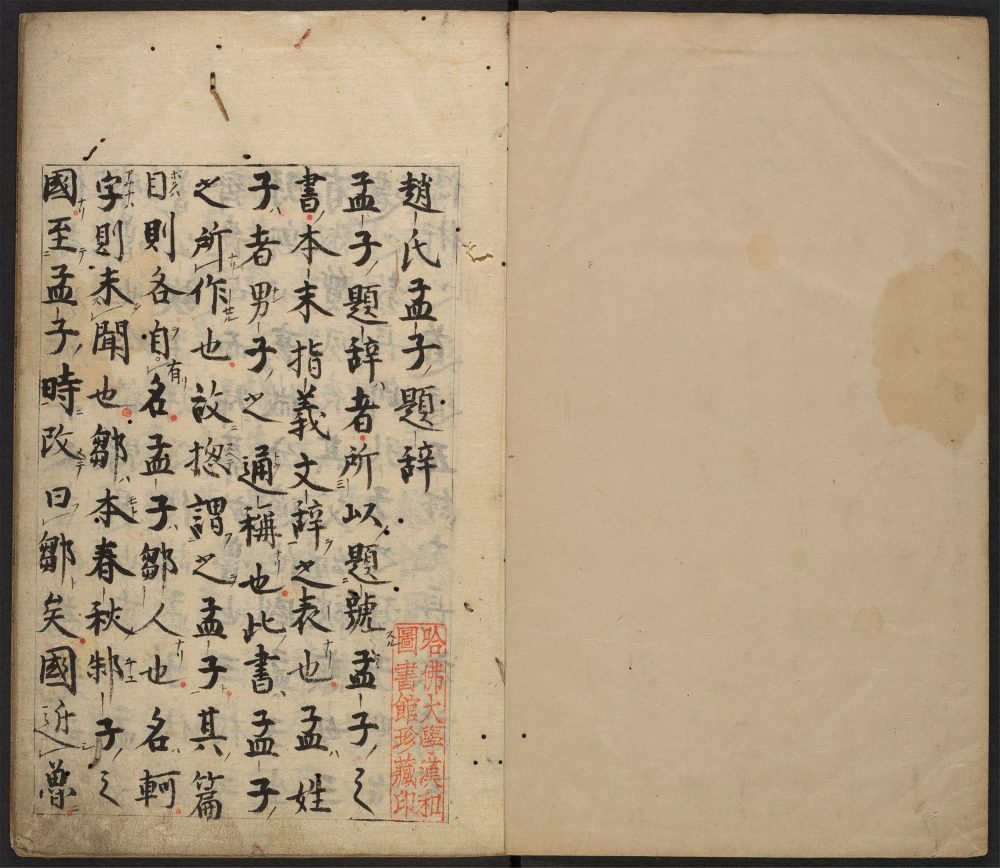 趙氏孟子題辞
孟子題辞者所以題號孟子之
書本末指義文辞之表也孟姓
子者男子之通稱也此書孟子
之所作也故揔謂之孟子其篇
目則各自有名孟子鄒人也名軻
字則未聞也鄒本春秋邾子之
國至孟子時改曰鄒矣國近魯
哈佛大學漢和
圖書館珍藏印